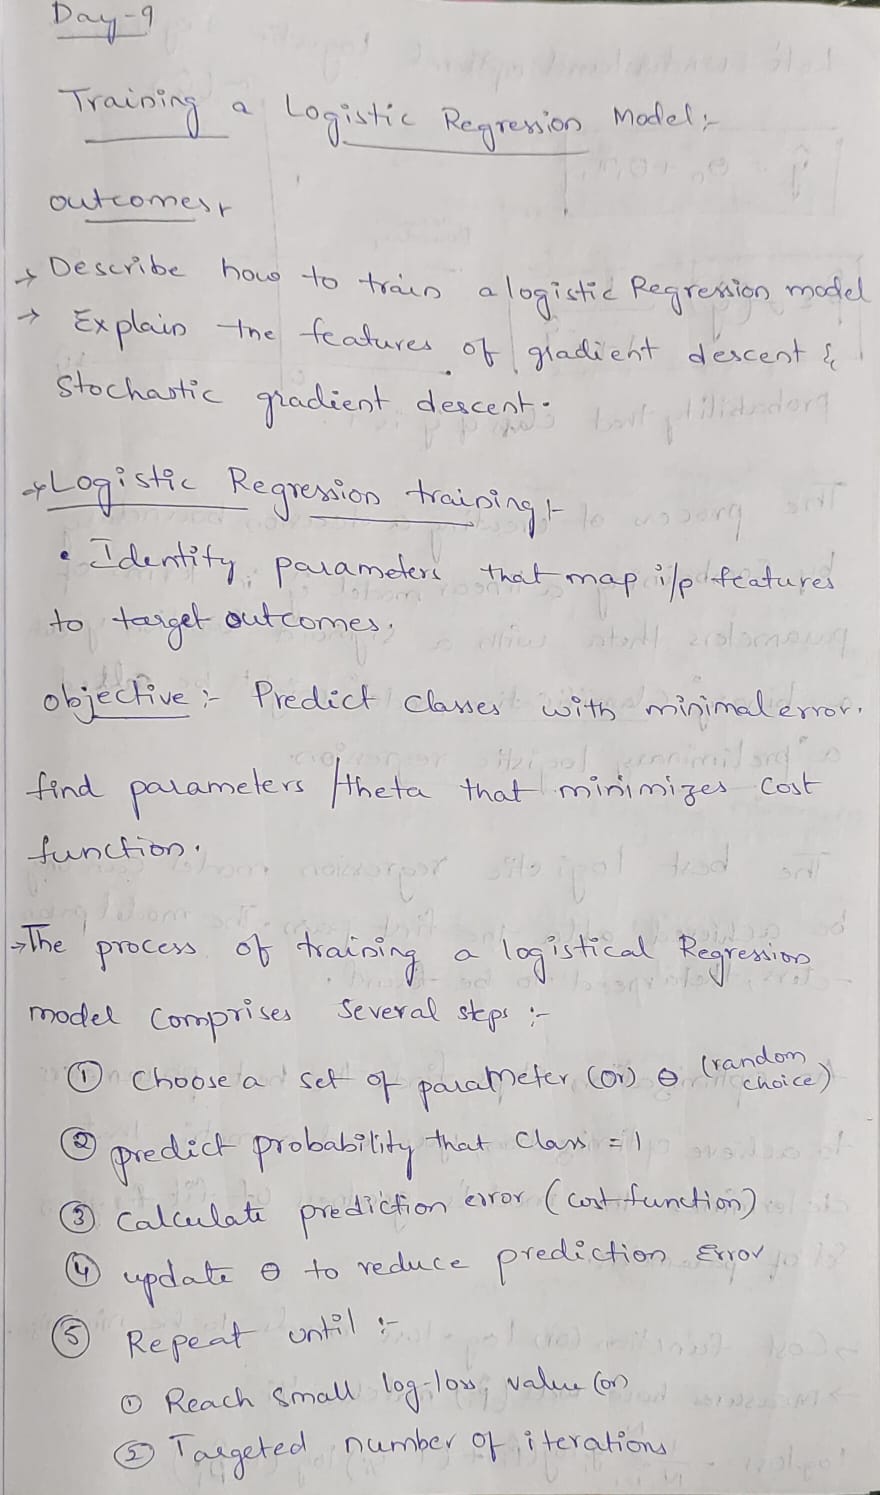 Day-9
Training a Logistic Regression Model:-
outcomes:-
→ Describe how to train a logistic Regression model
→ Explain the features of gradient descent &
stochastic gradient descent.
→ Logistic Regression training :-
• Identify parameters that map i/p features
to target outcomes.
objective :- Predict classes with minimal error.
find parameters /theta that minimizes cost
function.
→ The process of training a logistical Regression
model comprises several steps :-
① Choose a set of parameter (or) θ (random
choice)
② predict probability that class = 1
③ calculate prediction error (cost function)
④ update θ to reduce prediction Error
⑤ Repeat until :-
① Reach small log-loss value (or)
② Targeted number of iterations